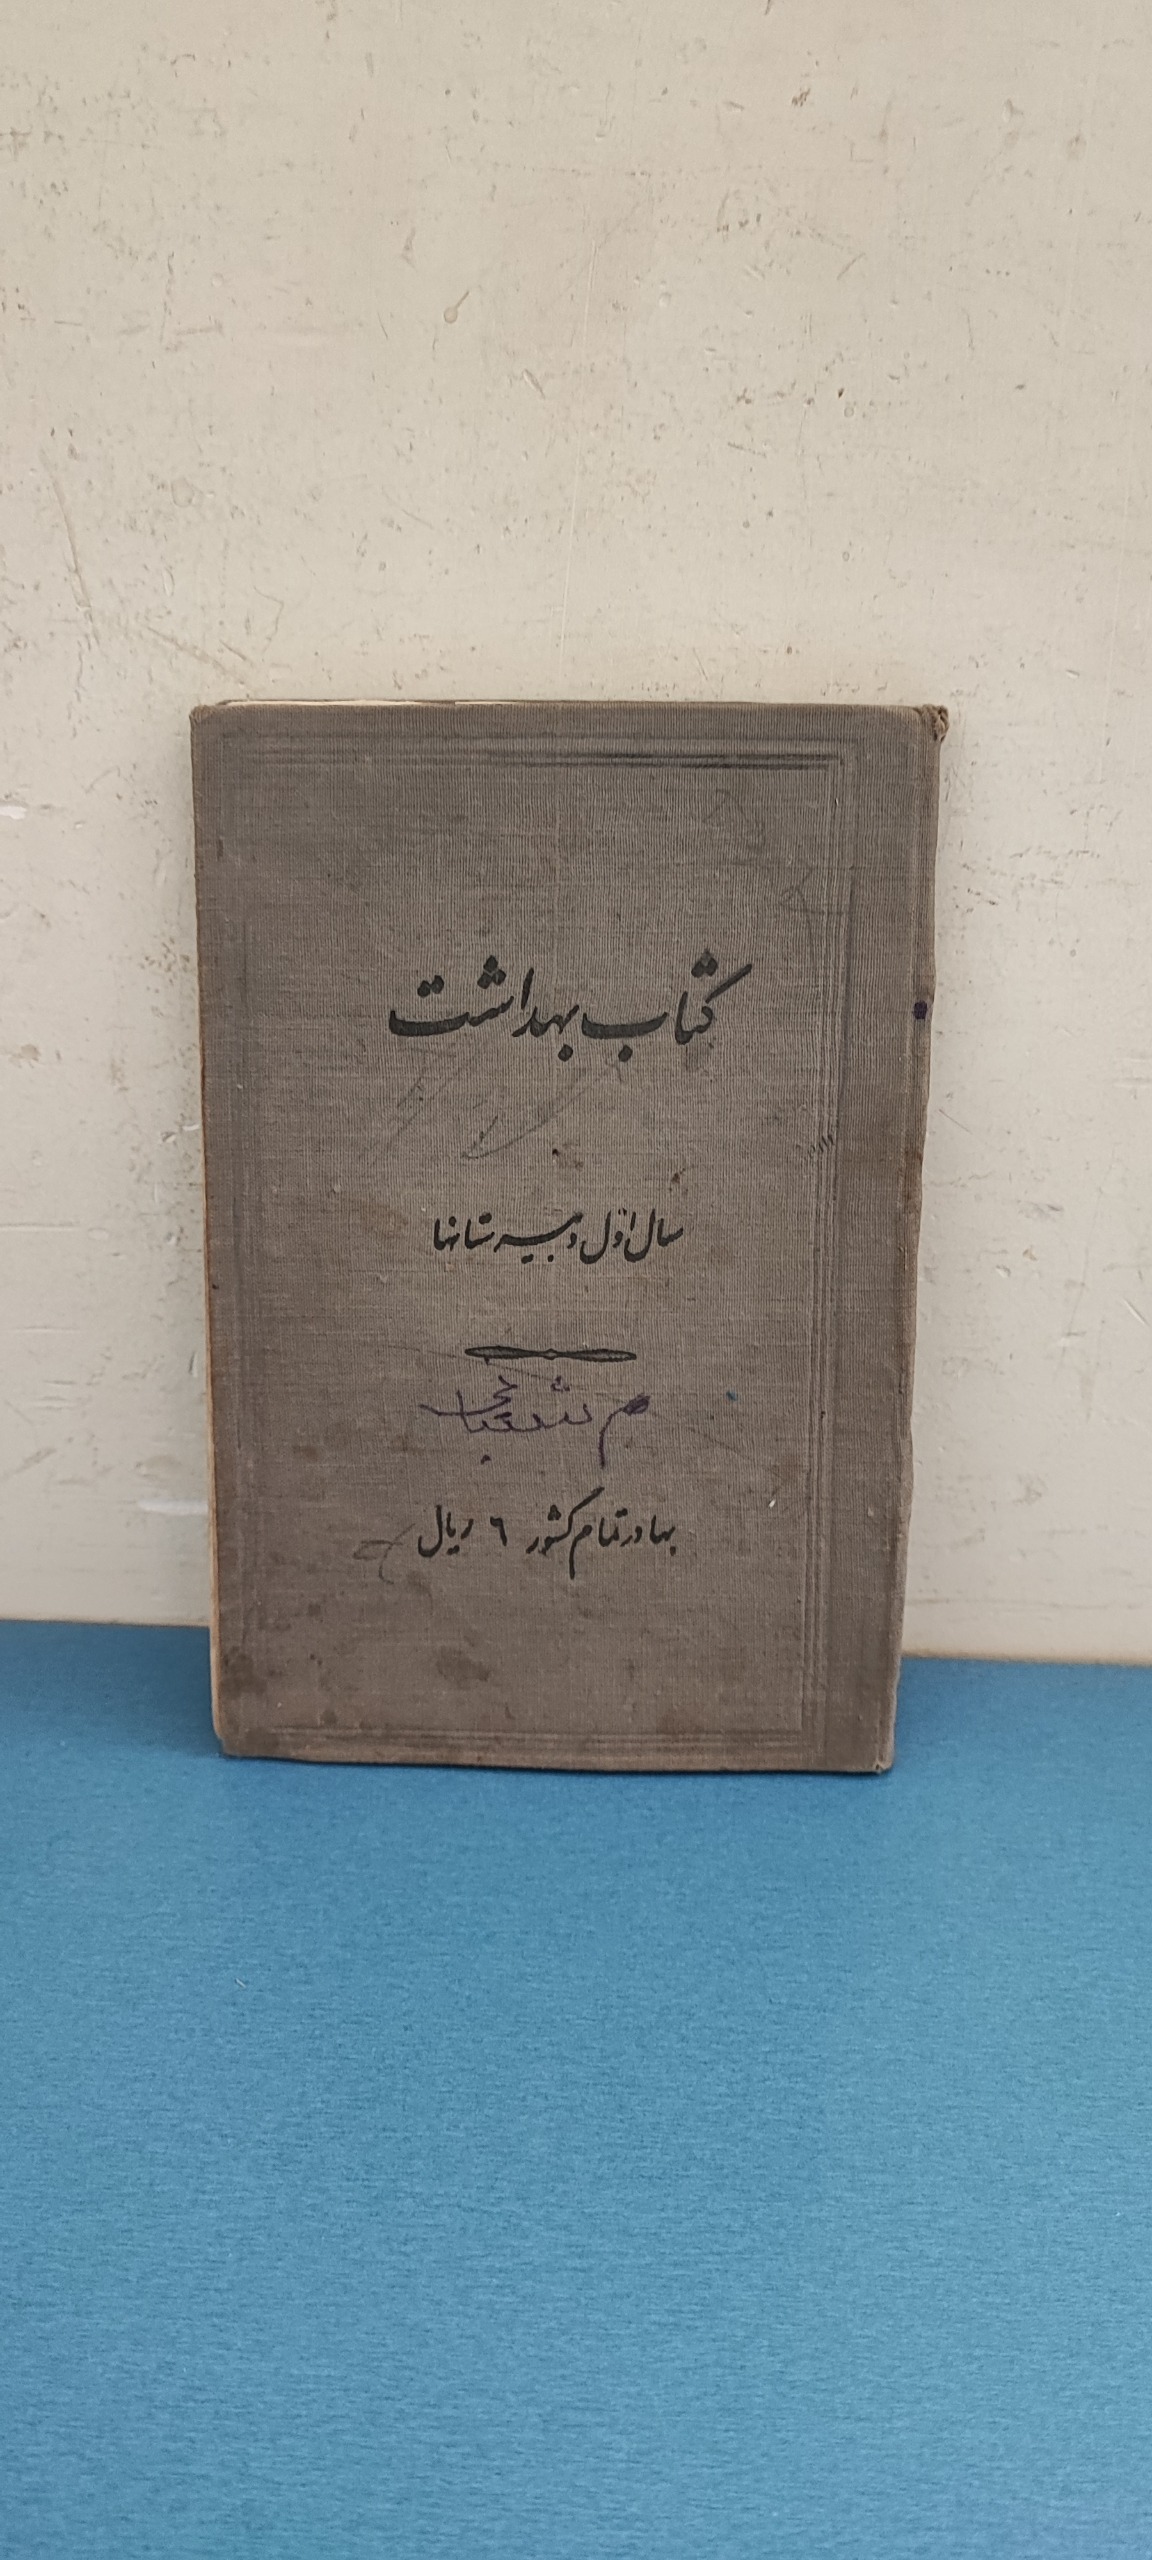 کتاب بهداشت
سال اوّل دبیرستانها
بها در تمام کشور ٦ ریال